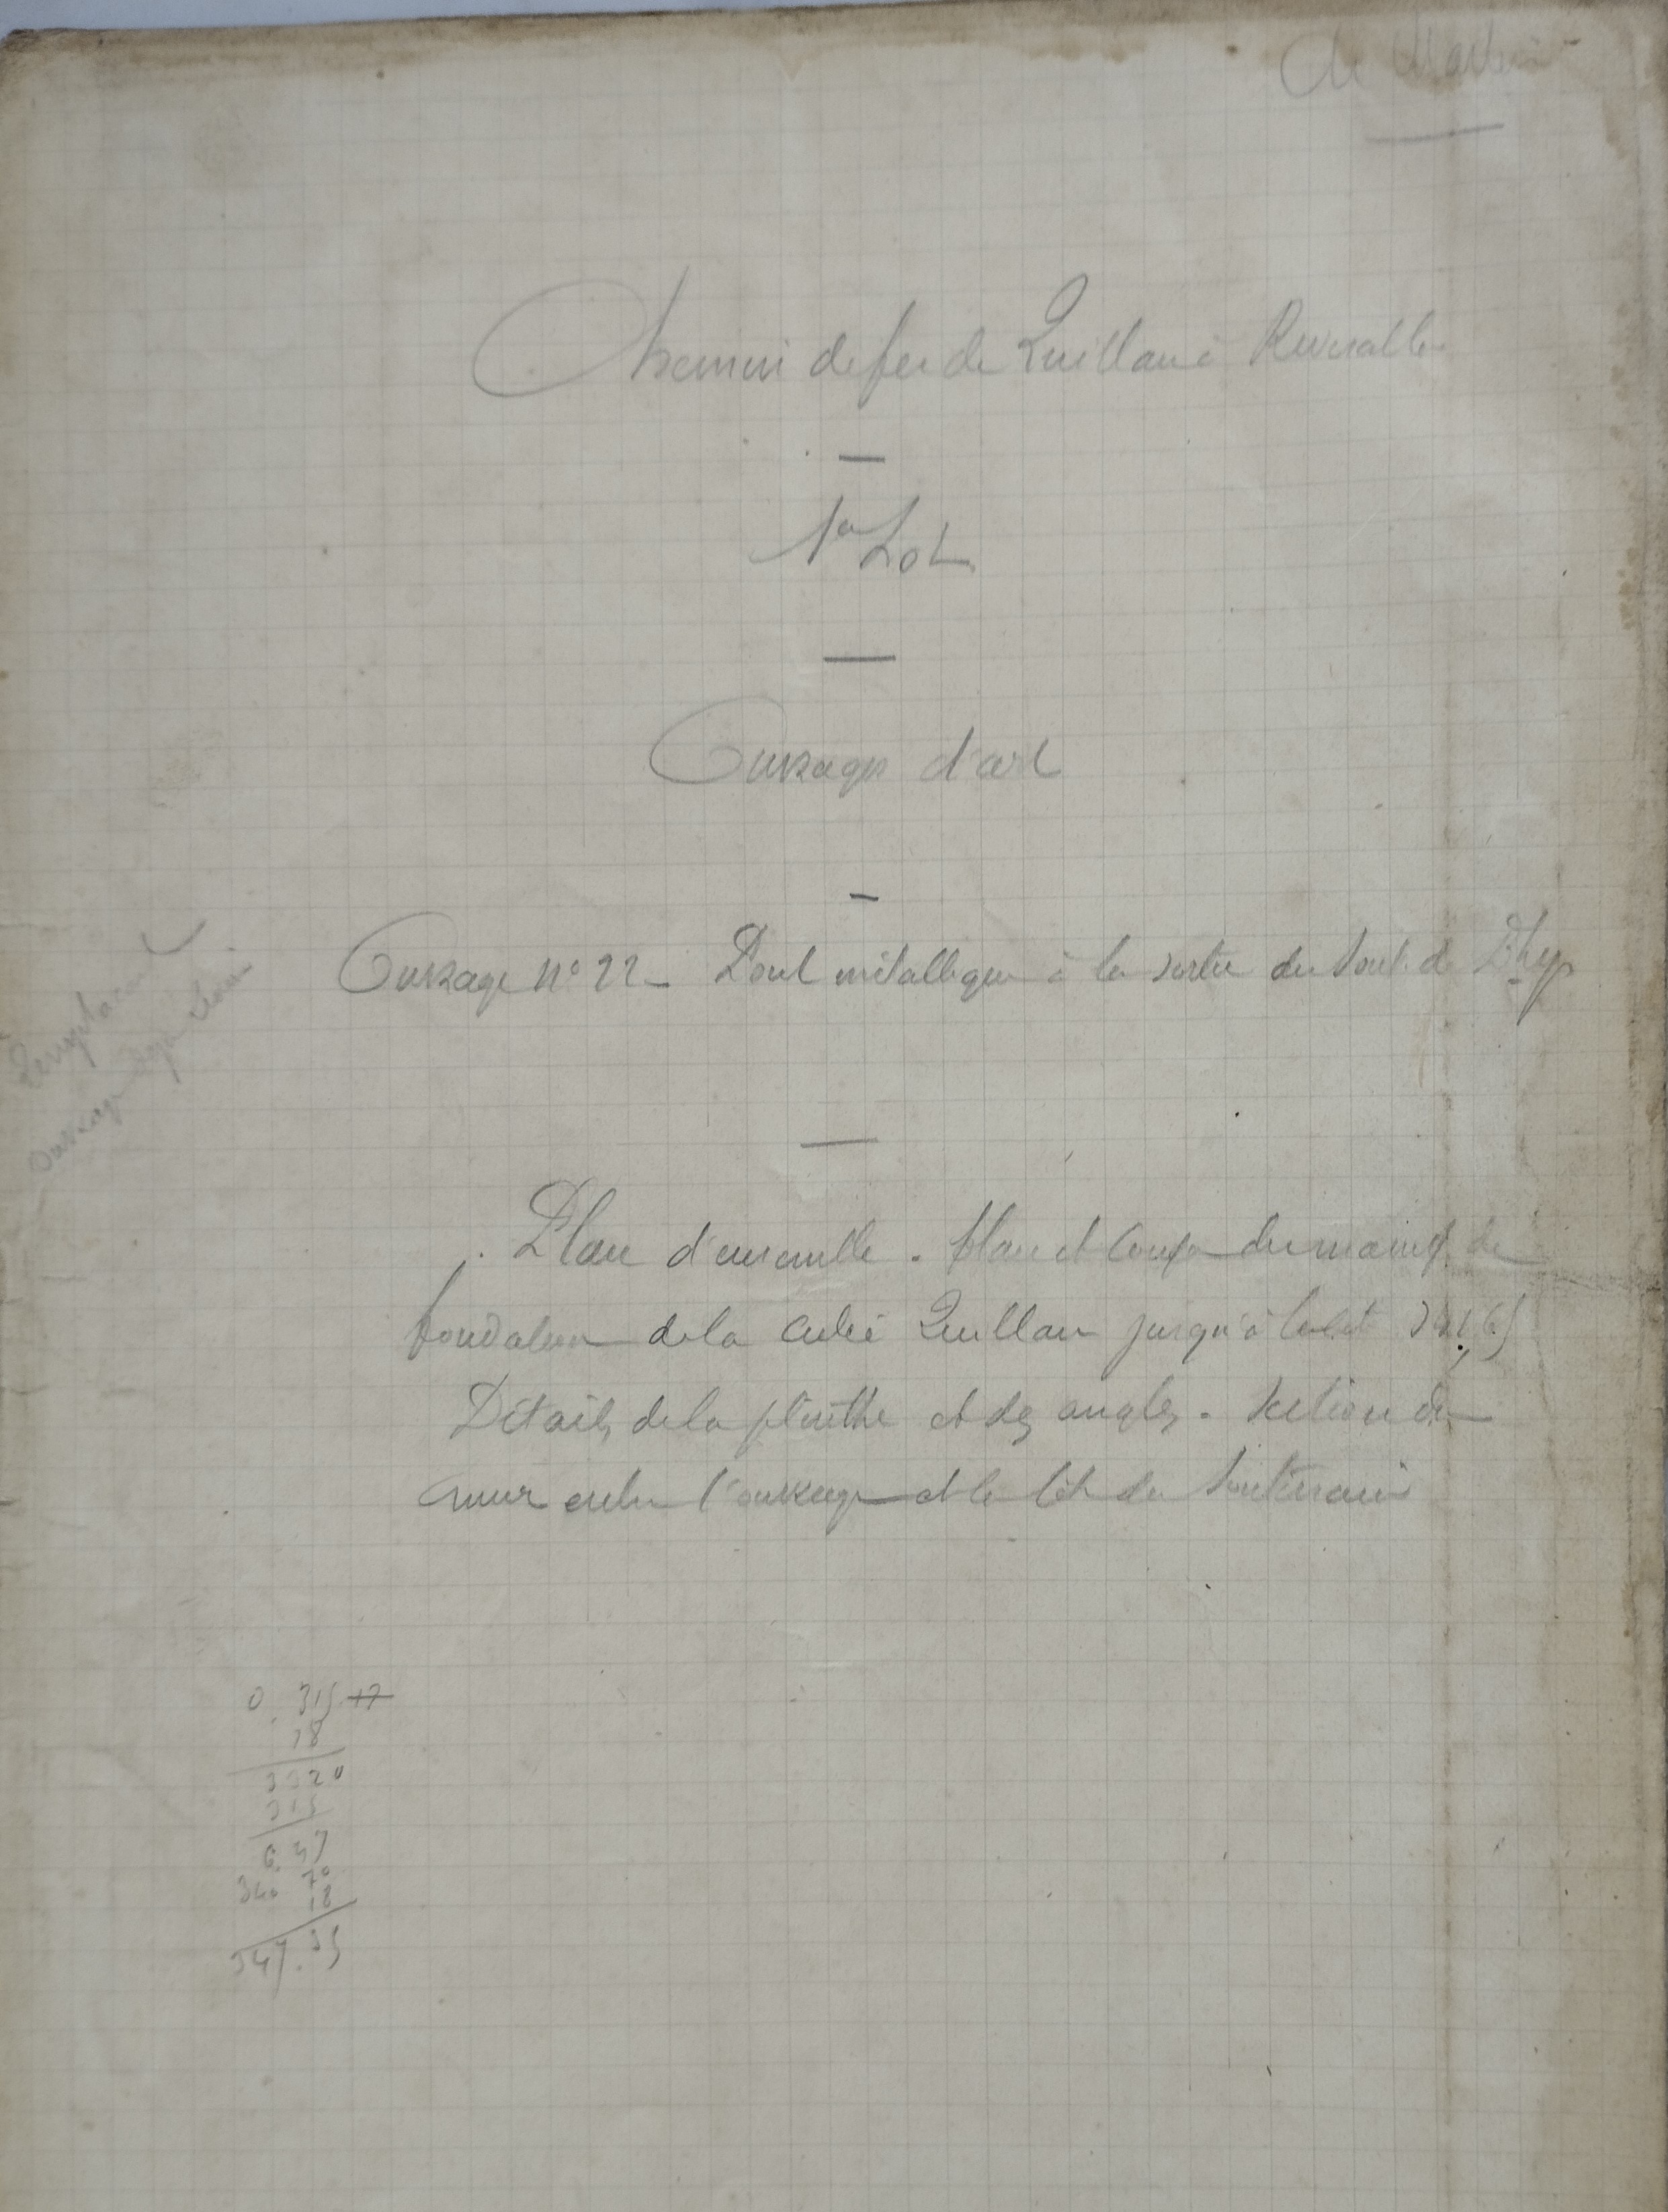 Chemin de fer de Quillan à Rivesaltes
1er Lot
Ouvrages d'art
Ouvrage n° 22 - Pont métallique à la sortie du Sout. de
Plan d'ensemble. Plan et Coupe du massif de
fondation de la culée Quillan jusqu'à la cote
Détails de la plinthe et des angles. Section du
mur entre l'ouvrage et la tête du Souterrain
0,315 17
18
315
6.47
340 70
18
347.35